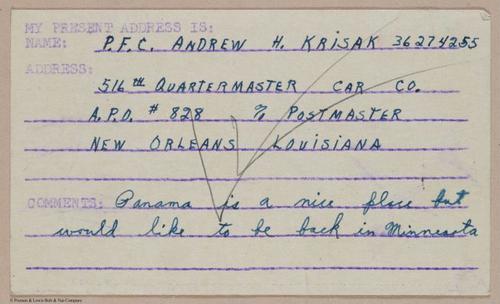 MY PRESENT ADDRESS IS:
NAME: P.F.C. ANDREW H. KRISAK 36274255
ADDRESS:
516th QUARTERMASTER CAR CO.
A.P.O. # 828 % POSTMASTER
NEW ORLEANS, LOUISIANA
COMMENTS: Panama is a nice place but
would like to be back in Minnesota
© Preston & Lewis Bolt & Nut Company